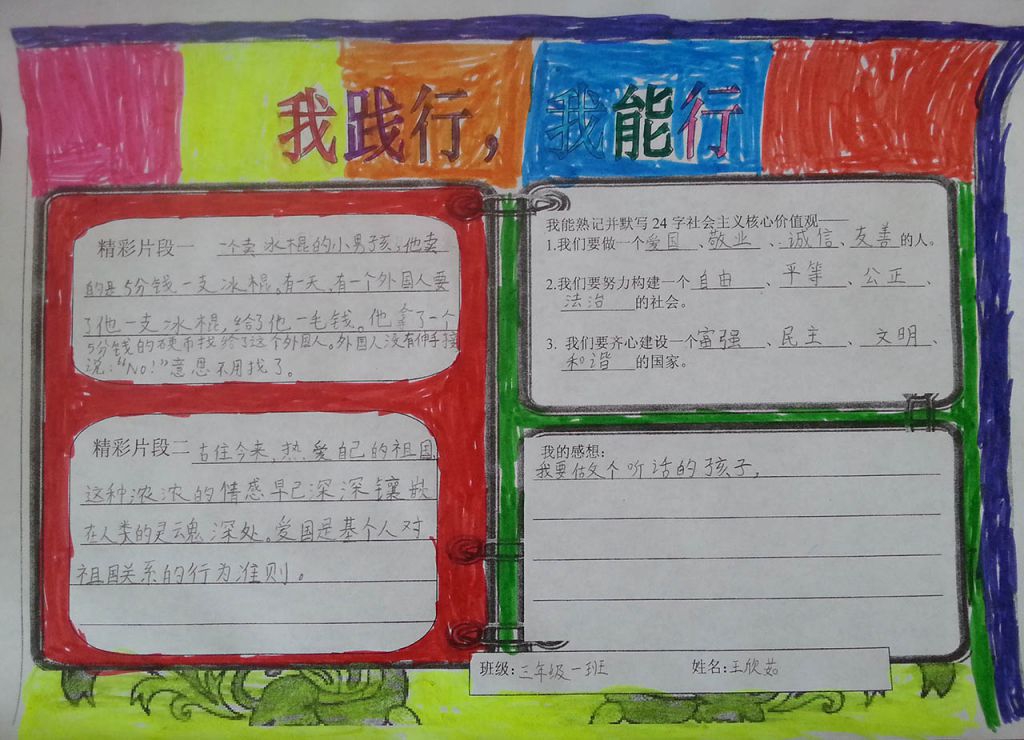 我践行，我能行
精彩片段一 一个卖冰棍的小男孩，他卖
的是5分钱一支冰棍。有一天，有一个外国人要
了他一支冰棍，给了他一毛钱。他拿了一个
5分钱的硬币找给了这个外国人。外国人没有伸手接
说：“No！”意思不用找了。
精彩片段二 古往今来，热爱自己的祖国
这种浓浓的情感早已深深镶嵌
在人类的灵魂深处。爱国是基个人对
祖国关系的行为准则。
我能熟记并默写24字社会主义核心价值观——
1.我们要做一个爱国、敬业、诚信、友善的人。
2.我们要努力构建一个自由、平等、公正、
法治的社会。
3. 我们要齐心建设一个富强、民主、文明、
和谐的国家。
我的感想：
我要做个听话的孩子，
班级：三年级一班 姓名：王欣茹